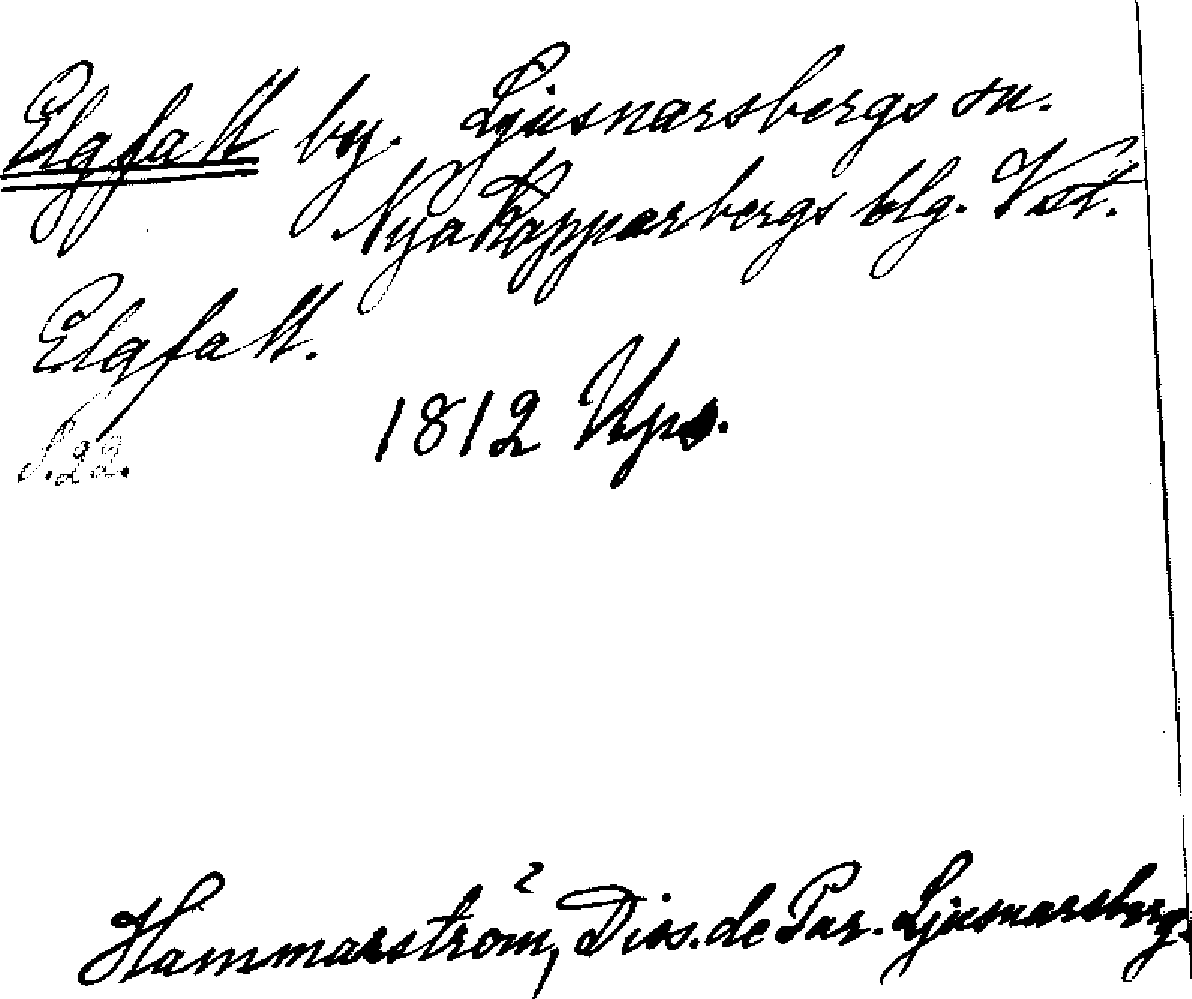 Elgfall by. Ljusnarsbergs sn.
Nya Kopparbergs blg. Vstl.
Elgfall.
1812 Ups.
S. 22.
Hammarström, Diss. de Par. Ljusnarsberg.